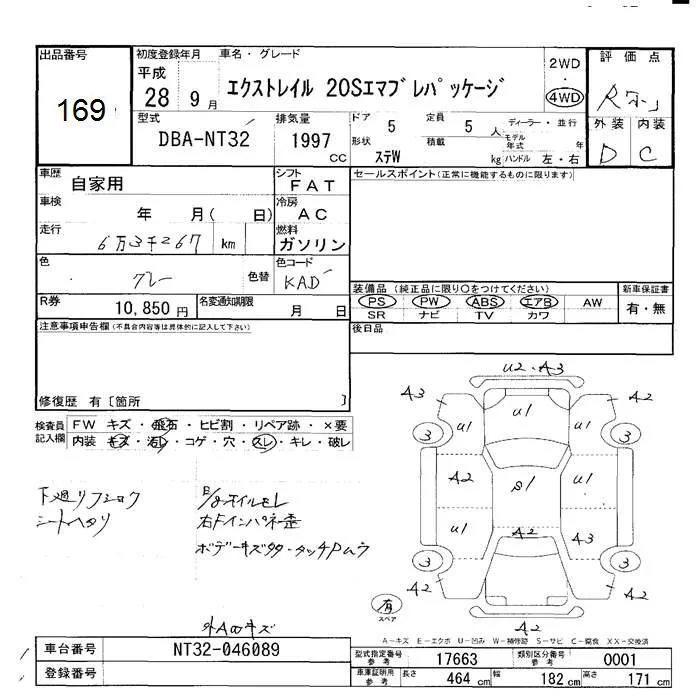 出品番号
169
初度登録年月
平成
28 9 月
車名・グレード
エクストレイル 20Sエマブレパッケージ
2WD
・
4WD
評価点
R
外装 内装
D C
型式
DBA-NT32
排気量
1997
CC
ドア 5
定員 5 人
形状 ステW
積載 kg
ディーラー・並行
モデル年式 年
ハンドル 左・右
車歴 自家用
シフト FAT
車検 年 月( 日)
冷房 AC
走行 6万3千267 km
燃料 ガソリン
色 グレー 色替
色コード KAD
R券 10,850 円
名変通知期限 月 日
セールスポイント(正常に機能するものに限ります)
装備品 (純正品に限り○をつけてください)
PS PW ABS エアB AW
SR ナビ TV カワ
新車保証書
有・無
後日品
注意事項申告欄(不具合内容等は具体的に記入して下さい)
修復歴 有〔箇所 〕
検査員記入欄
FW キズ・飛石・ヒビ割・リペア跡・×要
内装 キズ・汚レ・コゲ・穴・スレ・キレ・破レ
下廻リフショク
シートヘタリ
右Fインパネ歪
外AWキズ
U2・A3
A3 U1 A2
3 U1 U1 3
A2 S1 U1
U1 A2 A3
3 3
A2 A2
A2
有
スペア
A－キズ E－エクボ U－凹み W－補修跡 S－サビ C－腐食 XX－交換済
車台番号 NT32-046089
登録番号
型式指定番号 参考 17663
類別区分番号 参考 0001
車庫証明用 参考 長さ 464 cm 幅 182 cm 高さ 171 cm